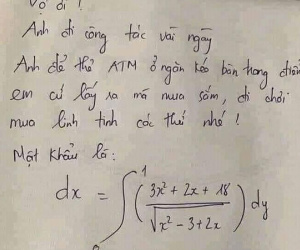 Vợ ơi !
Anh đi công tác vài ngày
Anh để thẻ ATM ở ngăn kéo bàn trang điểm
em cứ lấy ra mà mua sắm, đi chơi
mua linh tinh các thứ nhé !
Mật khẩu là:
dx = ∫₀¹ ( (3x² + 2x + 18) / √(x² - 3 + 2x) ) dy